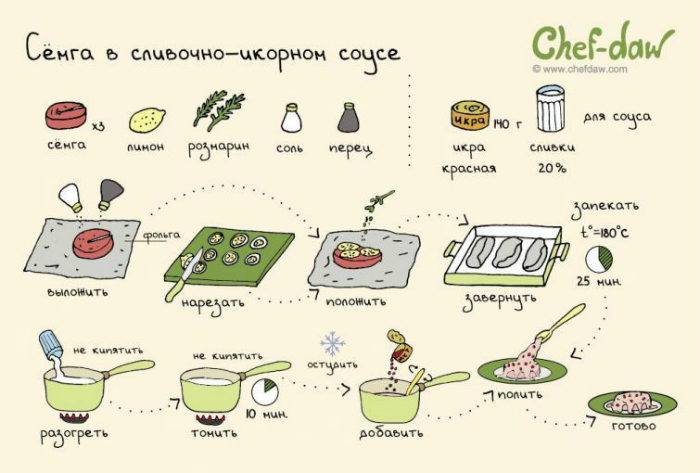 Сёмга в сливочно-икорном соусе
Chef-daw
© www.chefdaw.com
сёмга
x3
лимон
розмарин
соль
перец
икра
140 г
для соуса
икра
красная
сливки
20%
фольга
выложить
нарезать
положить
завернуть
запекать
t°=180°c
25 мин.
не кипятить
разогреть
не кипятить
томить
10 мин.
остудить
добавить
полить
готово